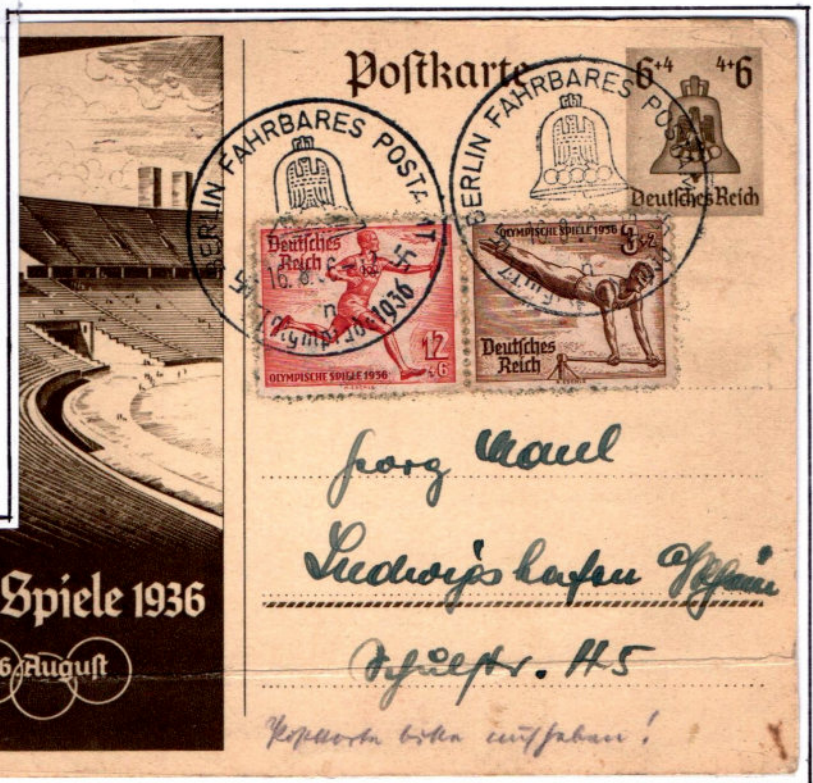 Postkarte
6+4 4+6
Deutsches Reich
BERLIN FAHRBARES POSTAMT
BERLIN FAHRBARES POSTAMT
Deutsches
Reich
16.8.36
1936
12
+6
OLYMPISCHE SPIELE 1936
OLYMPISCHE SPIELE 1936
3+2
Deutsches
Reich
Georg
Ludwigshafen a/Rhein
Schulstr. 45
Postkarte bitte aufheben!
Spiele 1936
6. August